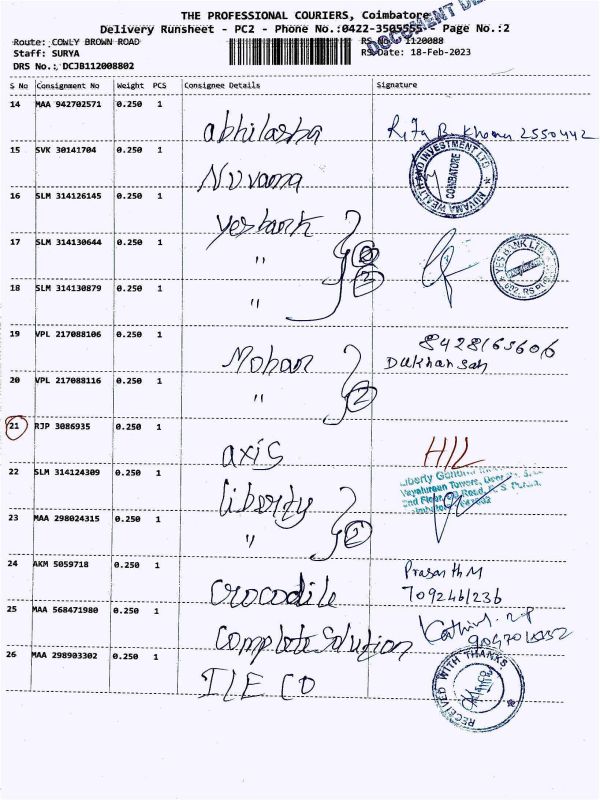 THE PROFESSIONAL COURIERS, Coimbatore
Delivery Runsheet - PC2 - Phone No.:0422-3505555 - Page No.:2
DOCUMENT
Route: COWLY BROWN ROAD
RS No.: 1120088
Staff: SURYA
RS Date: 18-Feb-2023
DRS No.: DCJB112008802
S No Consignment No Weight PCS Consignee Details Signature
14 MAA 942702571 0.250 1
abhilasha 2550442
15 SVK 30141704 0.250 1
Nuvama
NUVAMA WEALTH AND INVESTMENT LTD
COIMBATORE
16 SLM 314126145 0.250 1
Yesbank
17 SLM 314130644 0.250 1
"
YES BANK LTD
18 SLM 314130879 0.250 1
"
2
19 VPL 217088106 0.250 1
Mohan 8428165606
20 VPL 217088116 0.250 1
" 2
21 RJP 3086935 0.250 1
axis H/L
22 SLM 314124309 0.250 1
Liberty
Liberty General
Vayahurean Towers,
2nd Floor, Road, R. S. Puram,
23 MAA 298024315 0.250 1
" 2
24 AKM 5059718 0.250 1
Prasanth M
Crocodile 7092461236
25 MAA 568471980 0.250 1
Complete Solution
26 MAA 298903302 0.250 1
RECEIVED WITH THANKS